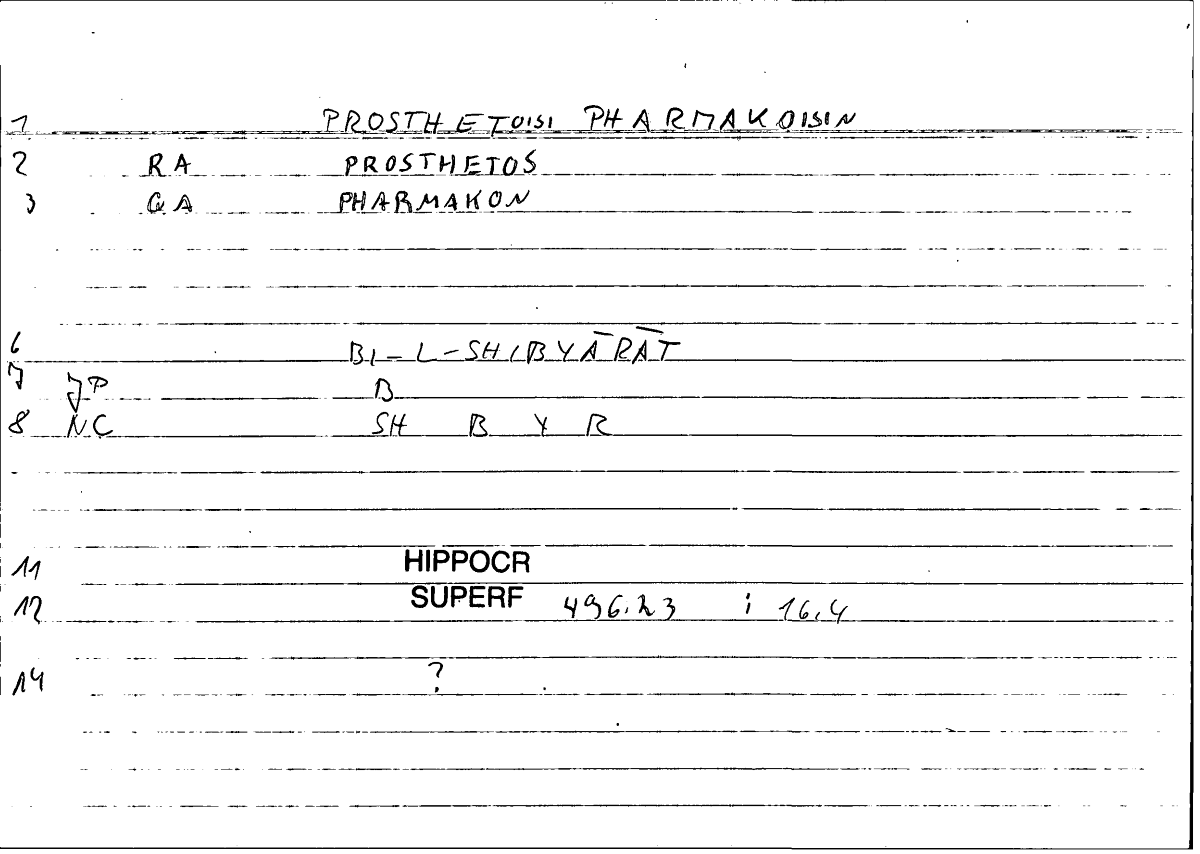 1 PROSTHETOISI PHARMAKOISIN
2 RA PROSTHETOS
3 GA PHARMAKON
6 BI-L-SHIBYĀRĀT
7 JP B
8 NC SH B Y R
11 HIPPOCR
12 SUPERF 496.23 ; 16.4
14 ?